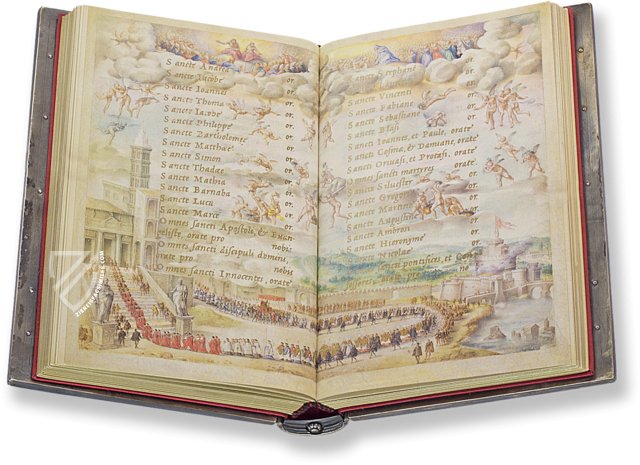 Sancte Andrea or.
Sancte Iacobe or.
Sancte Ioannes or.
Sancte Thoma or.
Sancte Iacobe or.
Sancte Philippe or.
Sancte Bartholomee or.
Sancte Matthaee or.
Sancte Simon or.
Sancte Thadaee or.
Sancte Mathia or.
Sancte Barnaba or.
Sancte Luca or.
Sancte Marce or.
Omnes sancti Apostoli, & Euan
gelistę, orate pro nobis
Omnes sancti discipuli domini,
orate pro nobis
Omnes sancti Innocentes, orate
Sancte Stephane or.
Sancte Vincenti or.
Sancte Fabiane or.
Sancte Sebastiane or.
Sancte Blasi or.
Sancti Ioannes, et Paule, orate
Sancti Cosma, & Damiane, orate
Sancti Geruasi, et Protasi, orate
Omnes sancti martyres or.
Sancte Siluester or.
Sancte Gregori or.
Sancte Martine or.
Sancte Augustine or.
Sancte Ambrosi or.
Sancte Hieronyme or.
Sancte Nicolae or.
Omnes sancti pontifices, et
orate pro nobis
ZIEREIS FACSIMILES